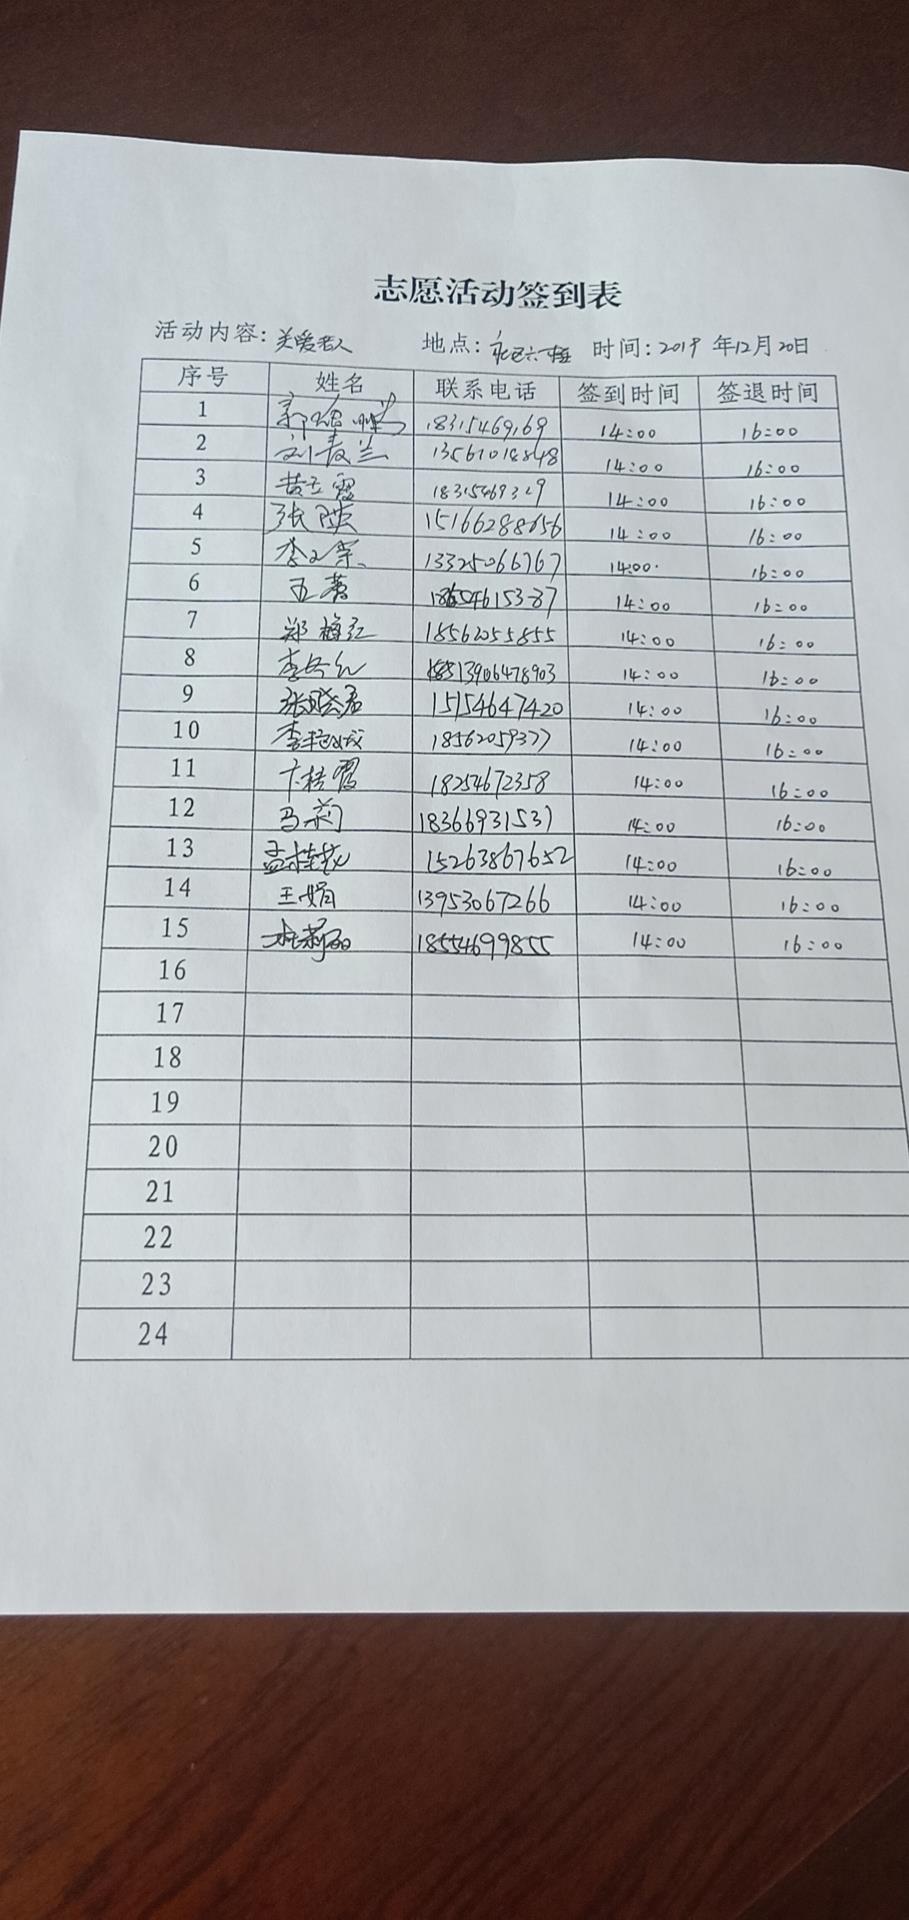 志愿活动签到表
活动内容: 关爱老人 地点: 时间: 2019 年12月20日
序号 姓名 联系电话 签到时间 签退时间
1 18315469169 14:00 16:00
2 刘麦兰 13561018848 14:00 16:00
3 黄玉霞 18315469329 14:00 16:00
4 张 15166288656 14:00 16:00
5 李 13325066767 14:00 16:00
6 14:00 16:00
7 郑梅红 18562055855 14:00 16:00
8 李 13906478903 14:00 16:00
9 张晓君 15154647420 14:00 16:00
10 李艳斌 18562059377 14:00 16:00
11 卞桂霞 18254672358 14:00 16:00
12 马莉 18366931537 14:00 16:00
13 孟桂 15263867652 14:00 16:00
14 王娟 13953067266 14:00 16:00
15 18554699855 14:00 16:00
16
17
18
19
20
21
22
23
24